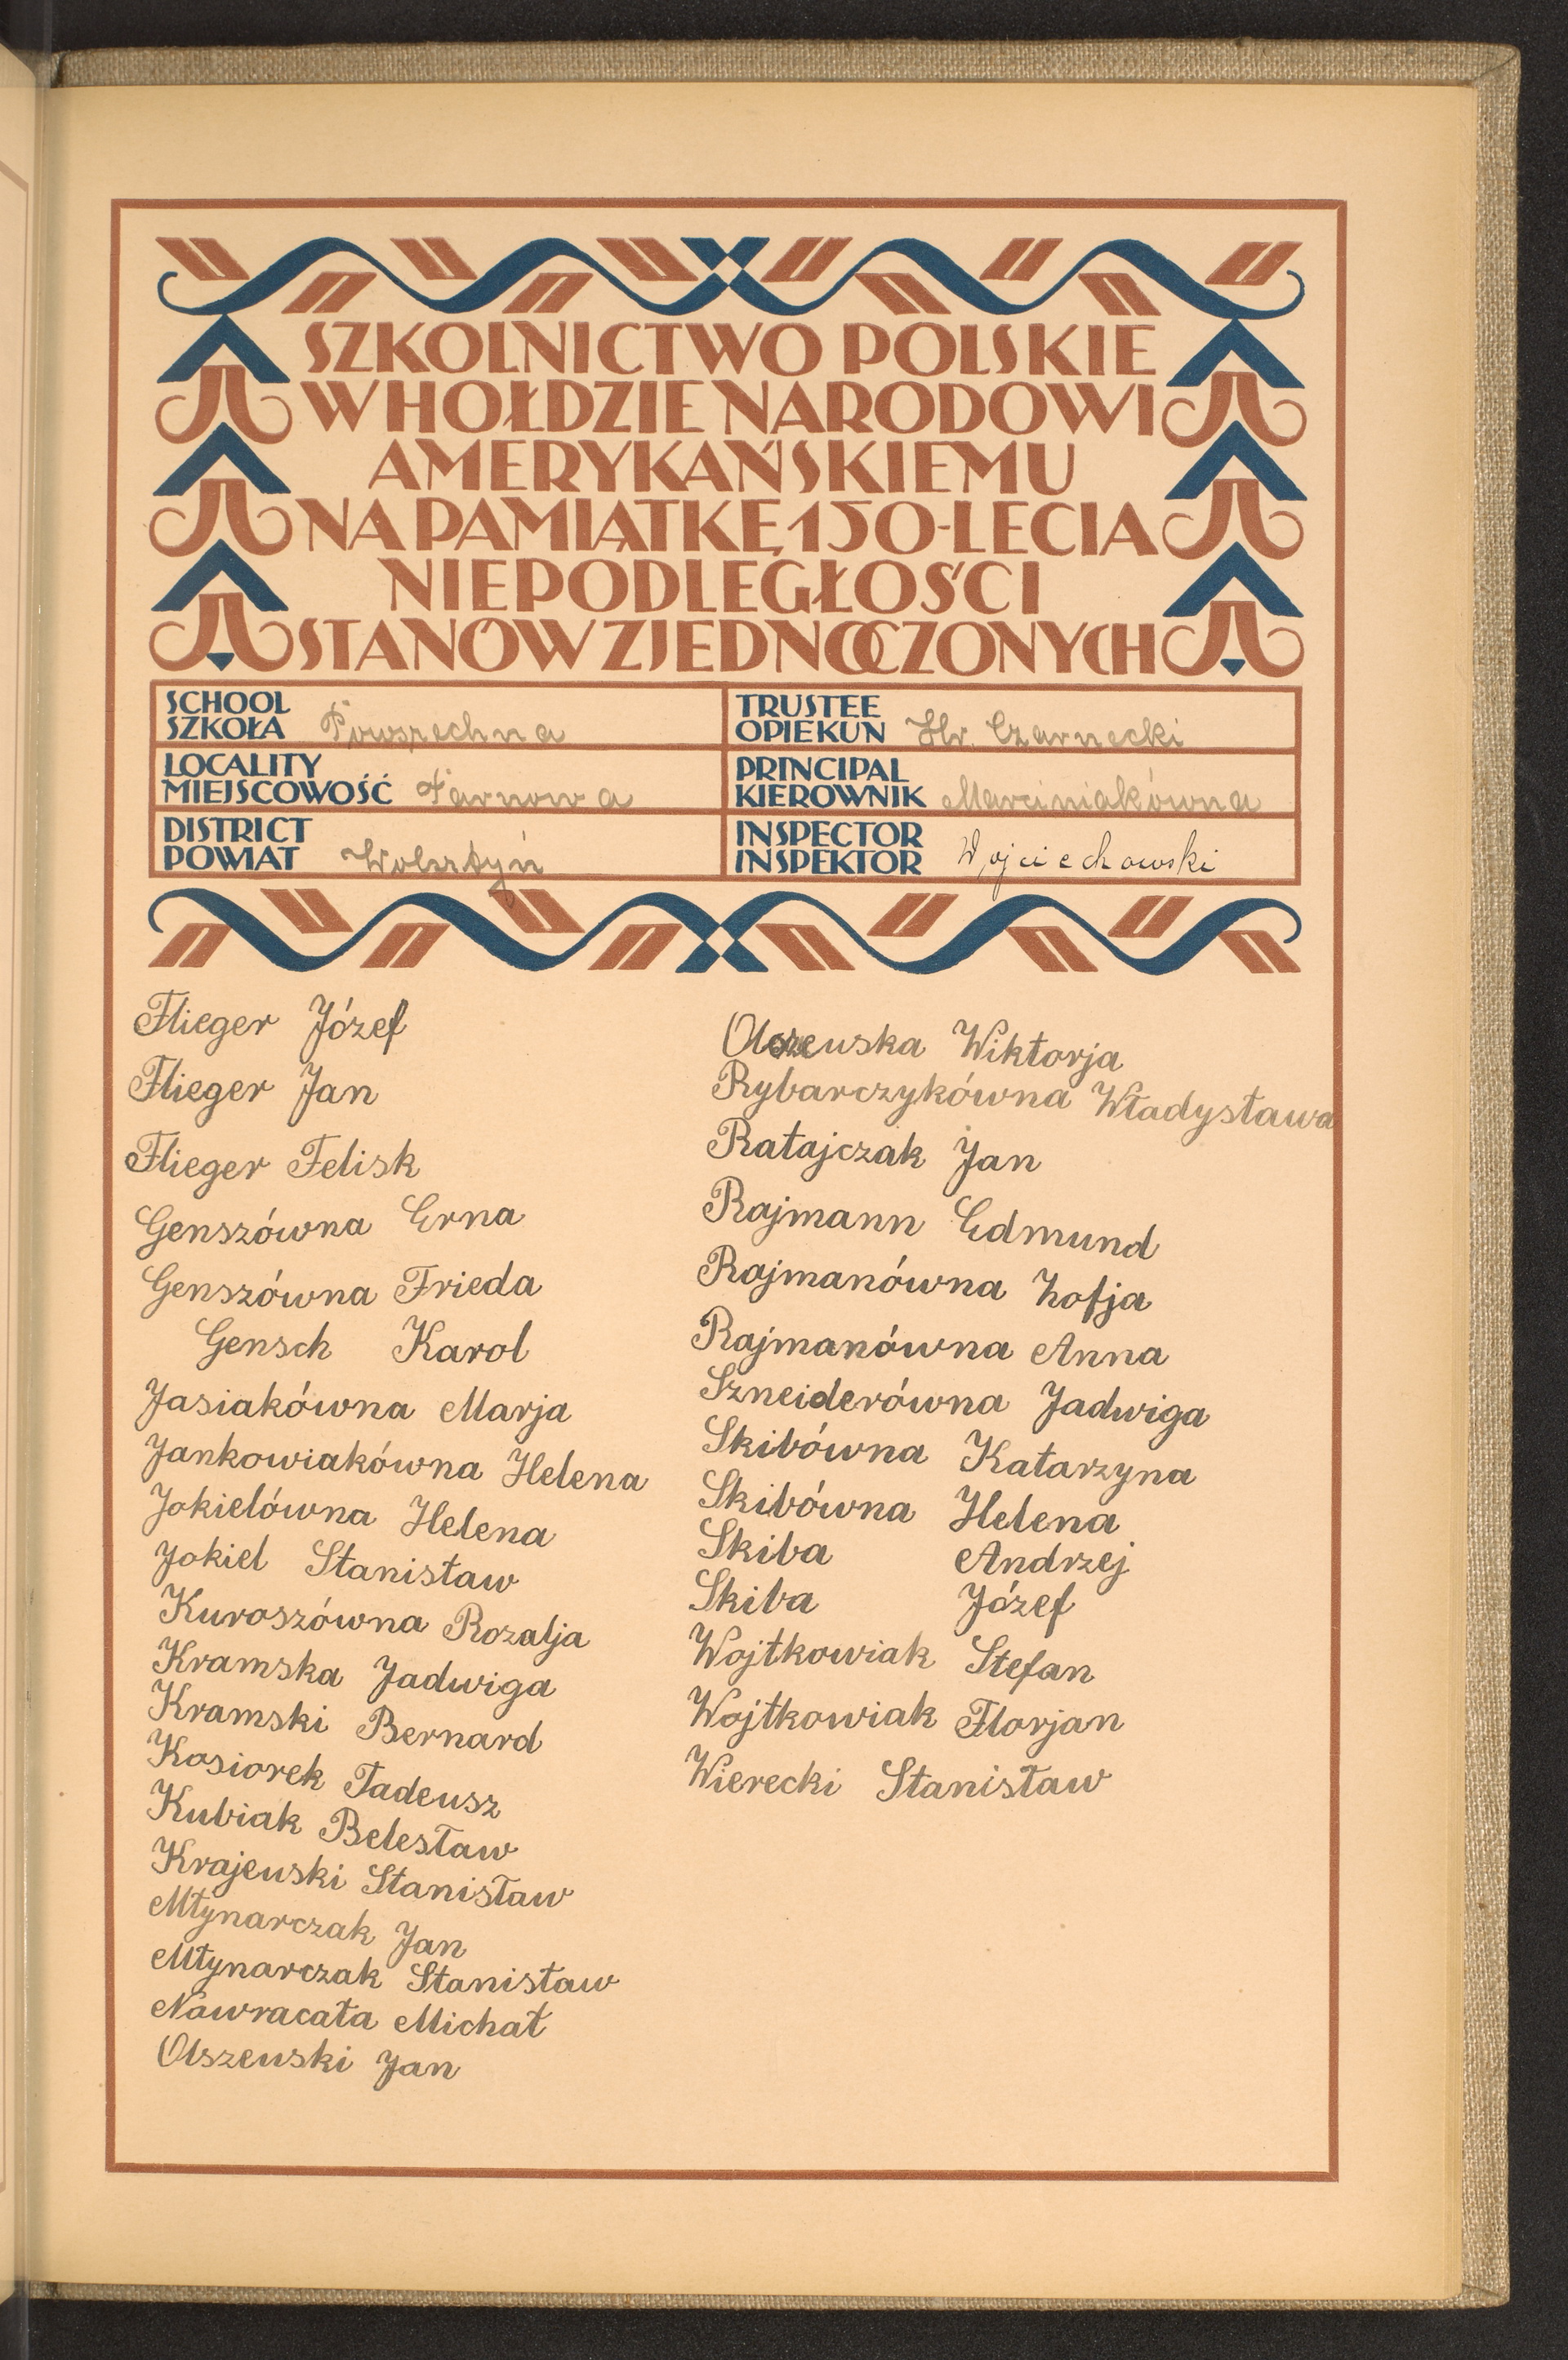 SZKOLNICTWO POLSKIE
W HOŁDZIE NARODOWI
AMERYKAŃSKIEMU
NA PAMIĄTKĘ 150-LECIA
NIEPODLEGŁOŚCI
STANÓW ZJEDNOCZONYCH
SCHOOL
SZKOŁA Powszechna
TRUSTEE
OPIEKUN Hr. Czarnecki
LOCALITY
MIEJSCOWOŚĆ Tarnowa
PRINCIPAL
KIEROWNIK Marciniakówna
DISTRICT
POWIAT Wolsztyń
INSPECTOR
INSPEKTOR Wojciechowski
Flieger Józef
Flieger Jan
Flieger Felisk
Genszówna Erna
Genszówna Frieda
Gensch Karol
Jasiakówna Marja
Jankowiakówna Helena
Jokielówna Helena
Jokiel Stanisław
Kuroszówna Rozalja
Kramska Jadwiga
Kramski Bernard
Kosiorek Tadeusz
Kubiak Belesław
Krajewski Stanisław
Młynarczak Jan
Młynarczak Stanisław
Nawracała Michał
Olszewski Jan
Olszewska Wiktorja
Rybarczykówna Władysława
Ratajczak Jan
Rajmann Edmund
Rajmanówna Zofja
Rajmanówna Anna
Szneiderówna Jadwiga
Skibówna Katarzyna
Skibówna Helena
Skiba Andrzej
Skiba Józef
Wojtkowiak Stefan
Wojtkowiak Florjan
Wierecki Stanisław